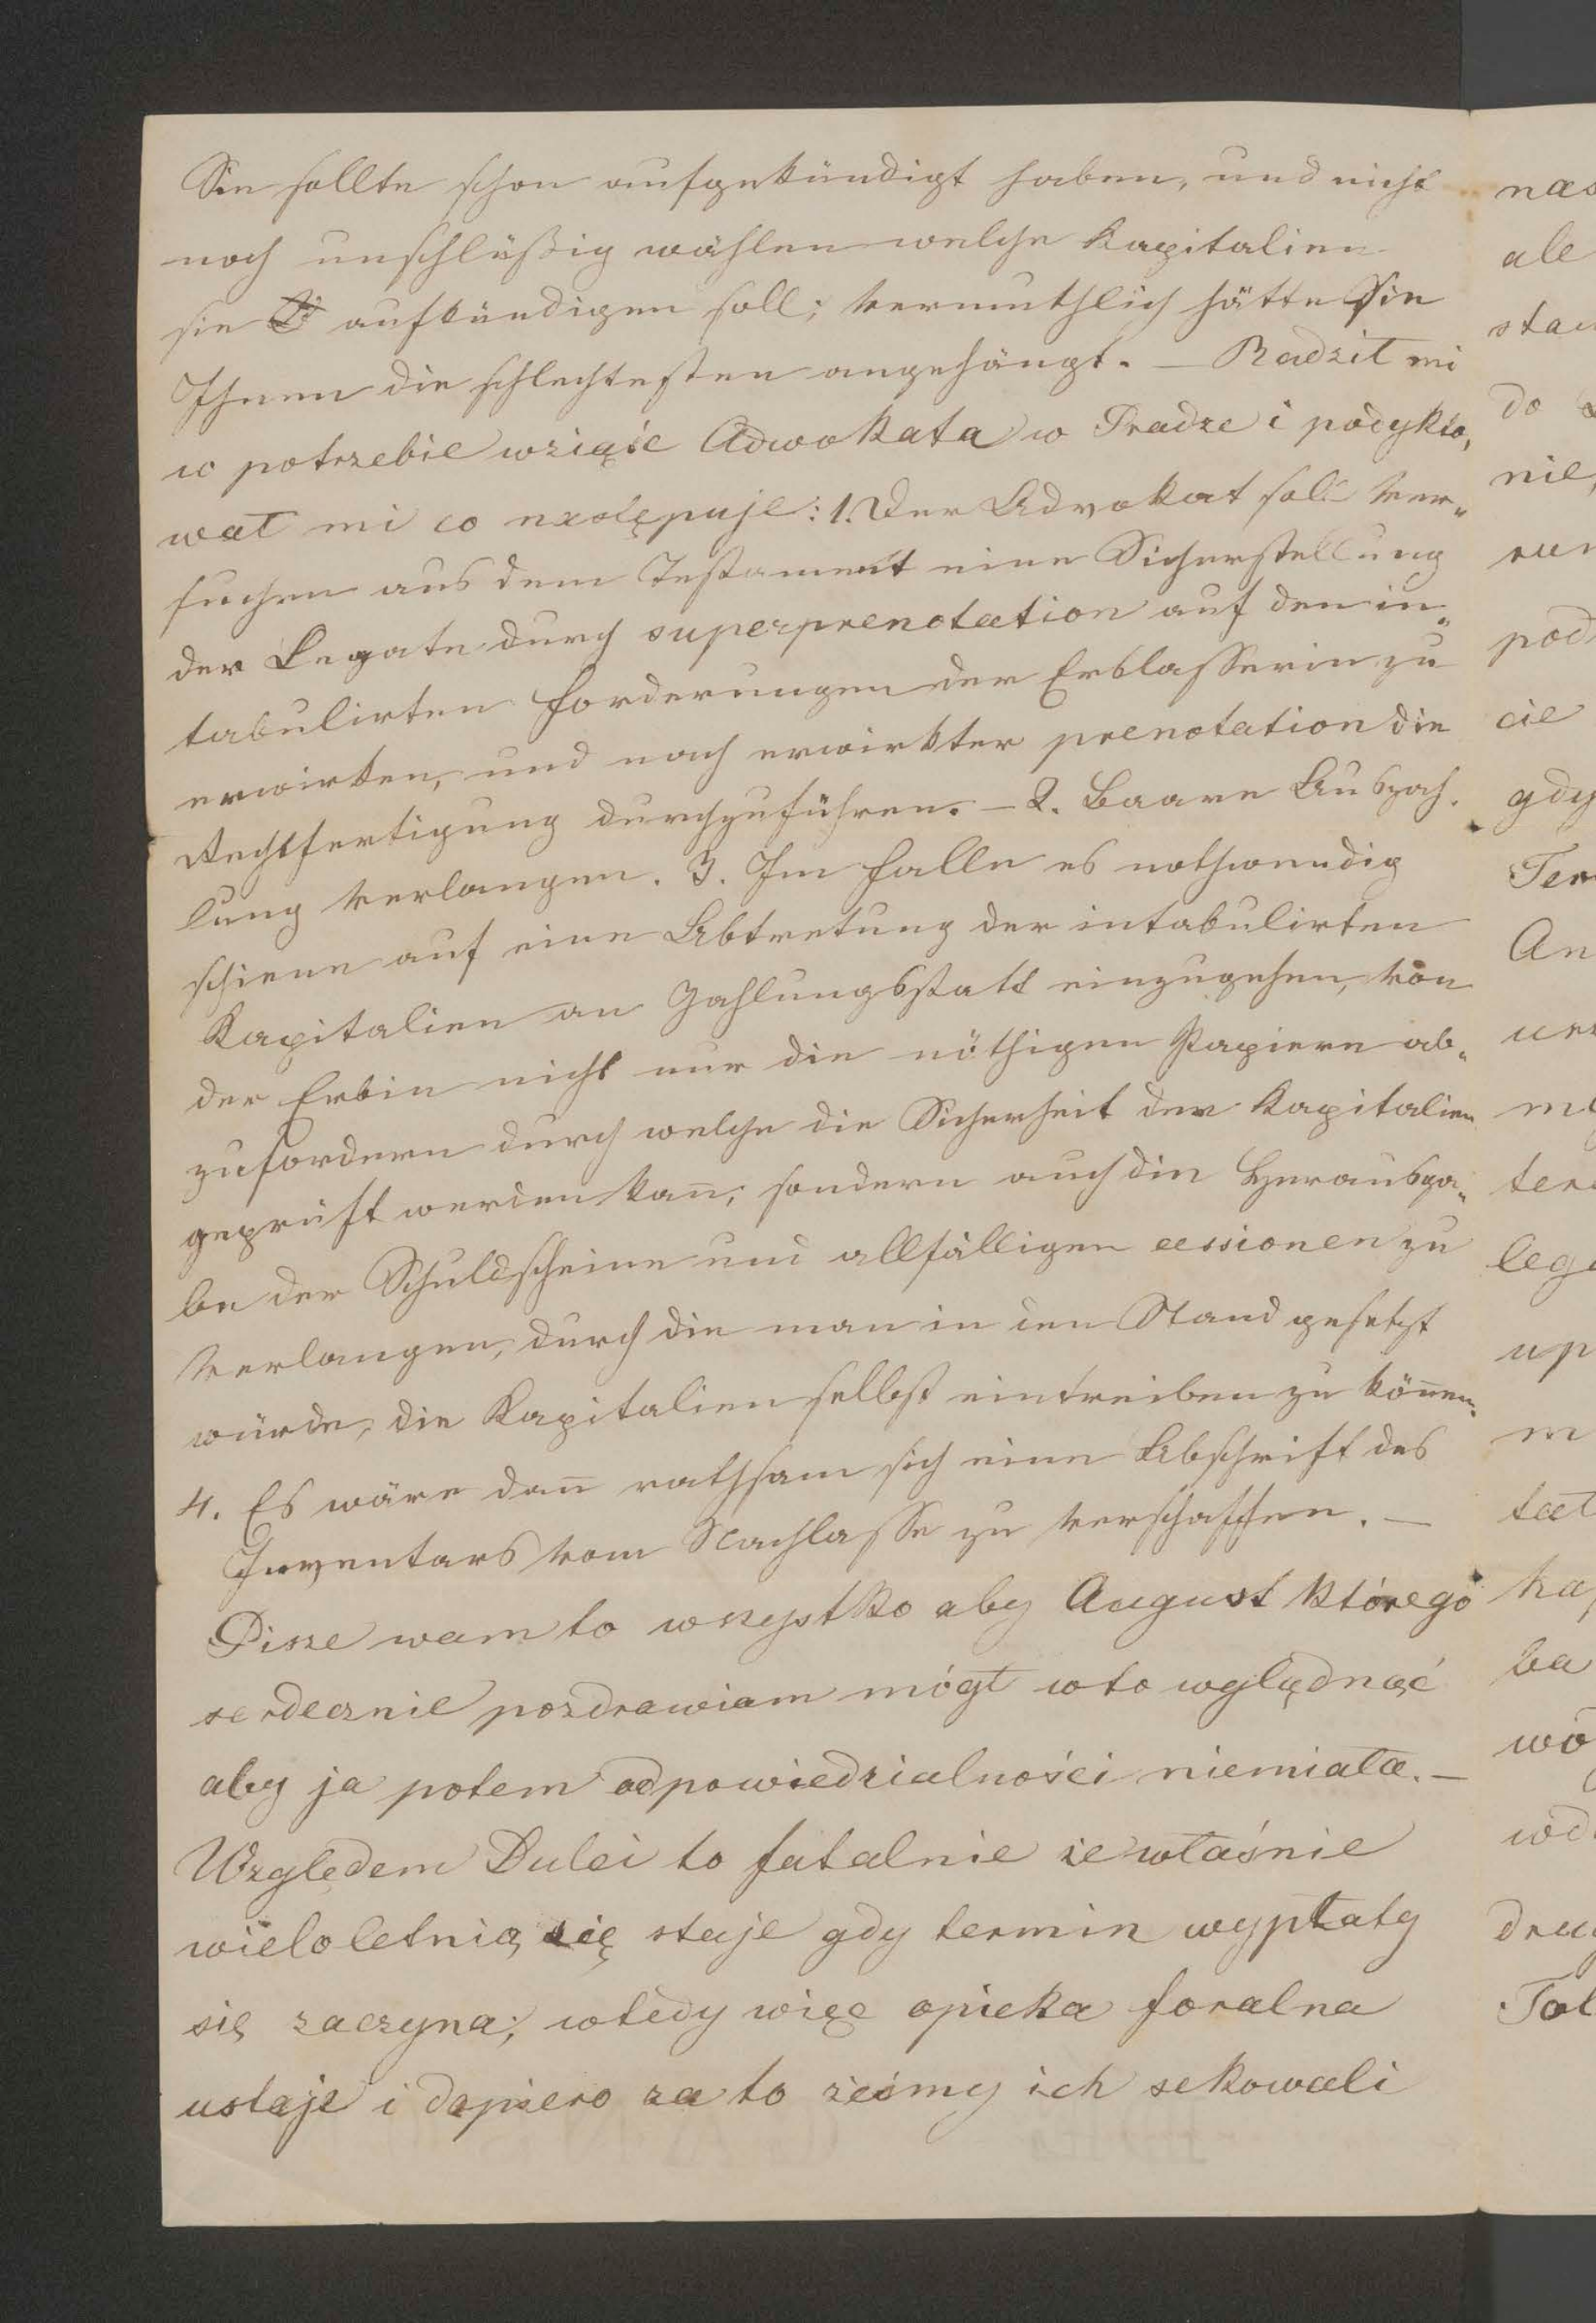 Sie sollte schon aufgekündigt haben, und nicht
noch unschlüßig wählen welche Kapitalien
sie aufkündigen soll; vermuthlich hätte Sie
Ihnen die schlechtesten angehängt. — Radził mi
w potrzebie wziąść Adwokata w Pradze i podykto„
wał mi co następuje: 1. Der Advokat soll ver„
suchen aus dem Testament eine Sicherstellung
der Legate durch superprenotation auf den in„
tabulirten Forderungen der Erblasserin zu
erwirken, und nach erwirkter prenotation die
Rechtfertigung durchzuführen. — 2. Baare Auszah„
lung verlangen. 3. Im Falle es nothwendig
schiene auf eine Abtretung der intabulirten
Kapitalien an Zahlungsstatt einzugehen, von
der Erbin nicht nur die nöthigen Papiere ab„
zufordern durch welche die Sicherheit der Kapitalien
geprüft werden kan̄, sondern auch die Herausga„
be der Schuldscheine und allfälligen cessionen zu
verlangen, durch die man in den Stand gesetzt
würde, die Kapitalien selbst eintreiben zu kön̄en.
4. Es wäre dan̄ rathsam sich eine Abschrift des
Inventars vom Nachlasse zu verschaffen. —
Pisze wam to wszystko aby August którego
serdecznie pozdrawiam mógł w to wglądnąć
aby ja potem odpowiedzialności niemiała. —
Względem Dulci to fatalnie że właśnie
wieloletnią się staje gdy termin wypłaty
się zaczyna; wtedy więc opieka foralna
ustaje i dopiero za to żeśmy ich sekowali
ale
do
nie,
cie
gdy
up
m
ba